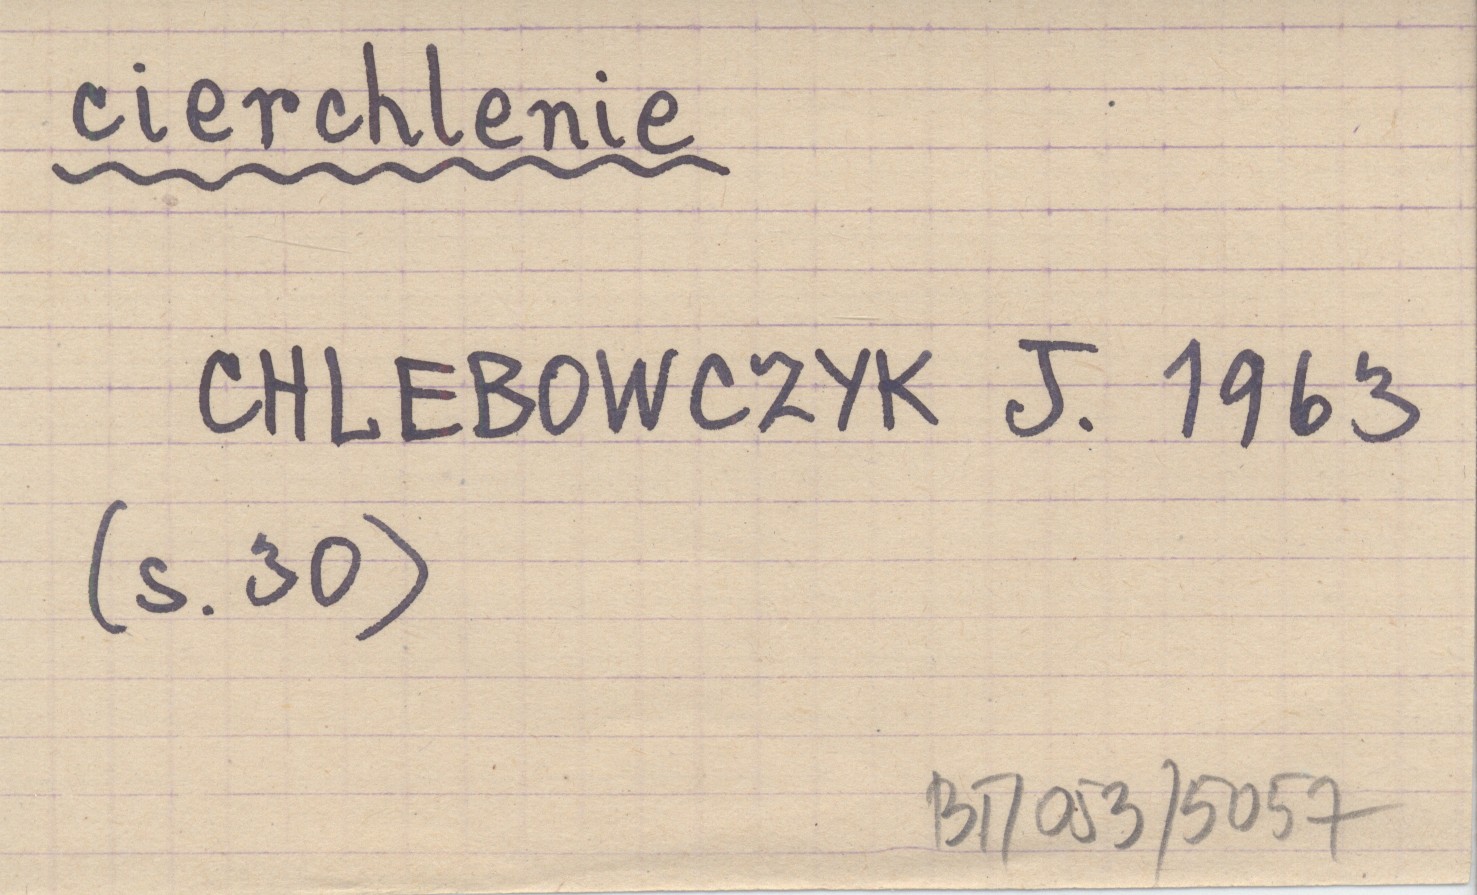 cierchlenie
CHLEBOWCZYK J. 1963
(s. 30)
BT/053/5057